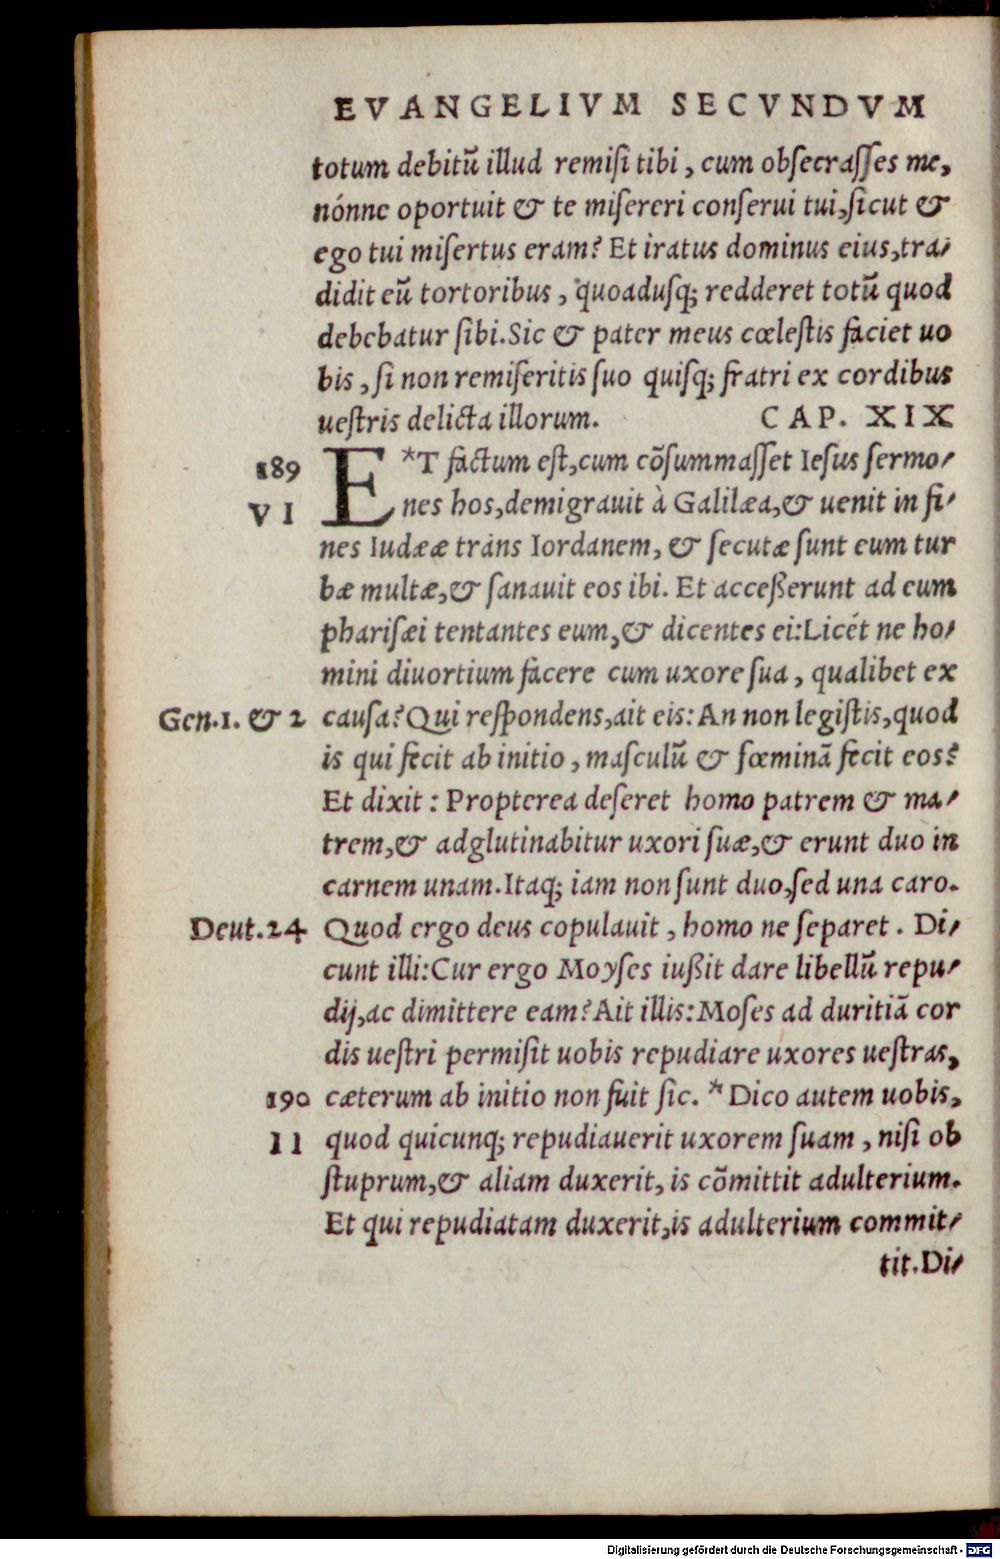 EVANGELIVM SECVNDVM
totum debitũ illud remiſi tibi, cum obſecraſſes me,
nónne oportuit & te miſereri conſerui tui,ſicut &
ego tui miſertus eram? Et iratus dominus eius,tra-
didit eũ tortoribus, quoaduſq; redderet totũ quod
debebatur ſibi.Sic & pater meus cœleſtis faciet uo
bis, ſi non remiſeritis ſuo quiſq; fratri ex cordibus
ueſtris delicta illorum. CAP. XIX
189 E*T factum eſt,cum cõſummaſſet Ieſus ſermo-
VI nes hos,demigrauit à Galilæa,& uenit in fi-
nes Iudææ trans Iordanem, & ſecutæ ſunt eum tur
bæ multæ,& ſanauit eos ibi. Et acceßerunt ad eum
phariſæi tentantes eum,& dicentes ei:Licét ne ho-
mini diuortium facere cum uxore ſua, qualibet ex
Gen.1. & 2 cauſa? Qui reſpondens,ait eis: An non legiſtis,quod
is qui fecit ab initio, maſculũ & fœminã fecit eos?
Et dixit: Propterea deſeret homo patrem & ma-
trem,& adglutinabitur uxori ſuæ,& erunt duo in
carnem unam.Itaq; iam non ſunt duo,ſed una caro.
Deut.24 Quod ergo deus copulauit, homo ne ſeparet. Di-
cunt illi:Cur ergo Moyſes iußit dare libellũ repu-
dij,ac dimittere eam? Ait illis:Moſes ad duritiã cor
dis ueſtri permiſit uobis repudiare uxores ueſtras,
190 cæterum ab initio non fuit ſic. *Dico autem uobis,
II quod quicunq; repudiauerit uxorem ſuam, niſi ob
ſtuprum,& aliam duxerit, is cõmittit adulterium.
Et qui repudiatam duxerit,is adulterium commit-
tit.Di-
Digitalisierung gefördert durch die Deutsche Forschungsgemeinschaft - DFG